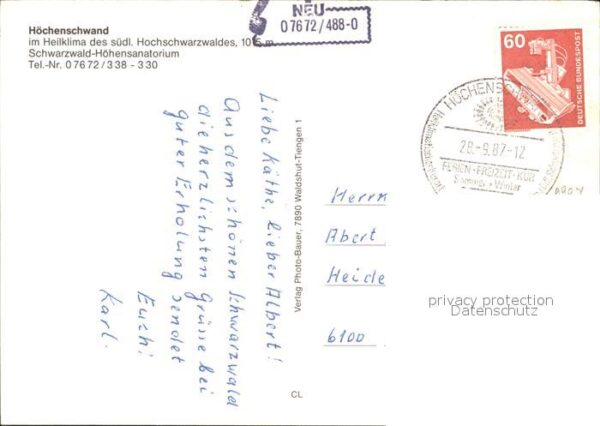 Höchenschwand
im Heilklima des südl. Hochschwarzwaldes, 1015 m
Schwarzwald-Höhensanatorium
Tel.-Nr. 0 76 72 / 3 38 - 3 30
NEU
0 76 72 / 488-0
60
DEUTSCHE BUNDESPOST
HÖCHENSCH
28.-9.87-12
FERIEN·FREIZEIT·KUR
Sommer + Winter
Liebe Käthe, lieber Albert!
Aus dem schönen Schwarzwald
die herzlichsten Grüsse bei
guter Erholung sendet
Euch:
Karl.
Verlag Photo-Bauer, 7890 Waldshut-Tiengen 1
CL
Herrn
Abert
Heide
6100
privacy protection
Datenschutz